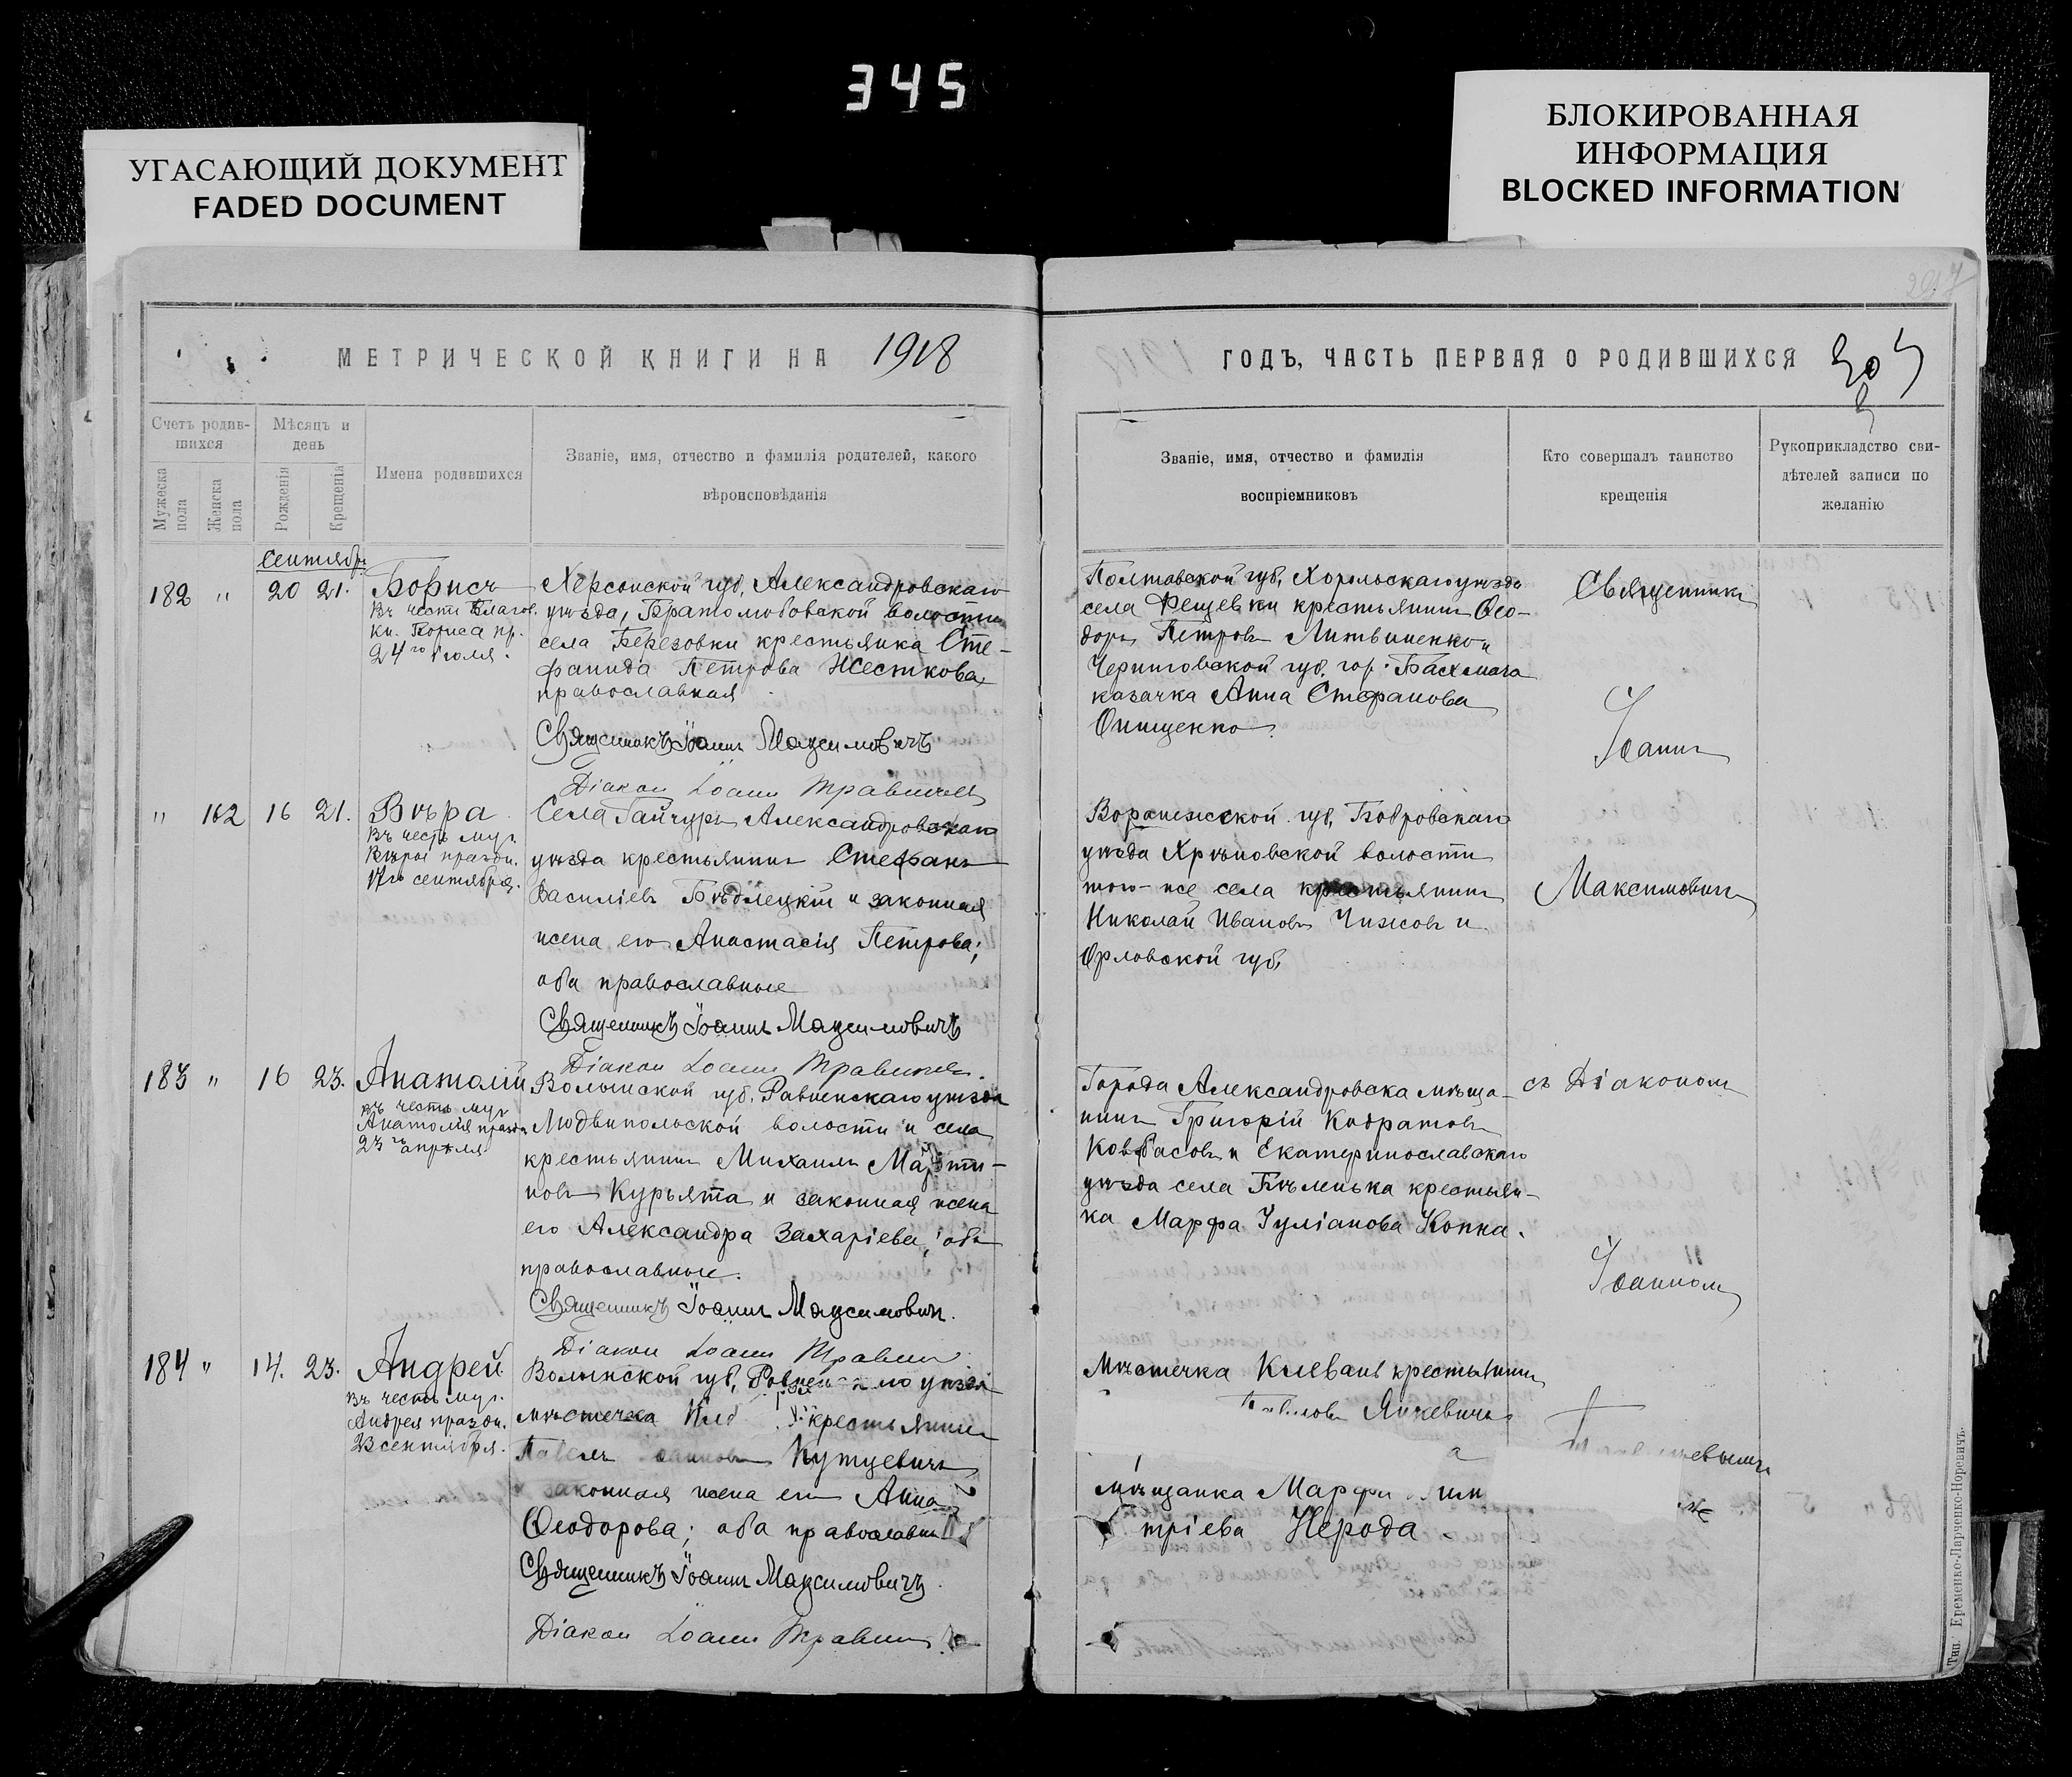 345
УГАСАЮЩИЙ ДОКУМЕНТ
FADED DOCUMENT
БЛОКИРОВАННАЯ
ИНФОРМАЦИЯ
BLOCKED INFORMATION
МЕТРИЧЕСКОЙ КНИГИ НА 1918
Счетъ родив-
шихся
Мѣсяцъ и
день
Мужеска
пола
Женска
пола
Рожденія
Крещенія
Имена родившихся
Званіе, имя, отчество и фамилія родителей, какого
вѣроисповѣданія
Сентябрь
182 " 20 21. Борисъ
Въ честь Благов.
кн. Бориса пр.
24го Іюля.
Херсонской губ, Александровскаго
уѣзда, Братолюбовской волости
села Березовки крестьянка Сте-
фанида Петрова Жесткова,
православная
Священникъ Іоаннъ Максимовичъ
Діакон Іоанн
" 162 16 21. Вѣра
Въ честь муч.
Вѣры праздн.
17го сентября.
Села Гайчуръ Александровскаго
уѣзда крестьянинъ Стефанъ
Василіевъ и законная
жена его Анастасія Петрова;
оба православные
Священникъ Іоаннъ Максимовичъ
Діакон Іоанн
183 " 16 23. Анатолій
Въ честь муч.
Анатолія праздн.
23го апрѣля
Волынской губ. Равненскаго уѣзда
Людвипольской волости и села
крестьянинъ Михаилъ Марти-
новъ Курьята и законная жена
его Александра Захаріева, оба
православные.
Священникъ Іоаннъ Максимович.
Діакон Іоанн
184 " 14. 23. Андрей
Въ честь муч.
Андрея праздн.
23 сентября.
Волынской губ, уѣзда
мѣстечка крестьянинъ
Павелъ Кутцевичъ
законная жена его Анна
Ѳеодорова; оба православны
Священникъ Іоаннъ Максимовичъ.
Діакон Іоанн
ГОДЪ, ЧАСТЬ ПЕРВАЯ О РОДИВШИХСЯ
Званіе, имя, отчество и фамилія
воспріемниковъ
Кто совершалъ таинство
крещенія
Рукоприкладство сви-
дѣтелей записи по
желанію
Полтавской губ, Хорольскаго уѣзда
села Фещевки крестьянинъ Ѳео-
доръ Петровъ Литвиненко и
Черниговской губ. гор. Бахмача
казачка Анна Стефанова
Онищенко.
Воронежской губ, Бобровскаго
уѣзда Хрѣновской волости
того-же села крестьянинъ
Николай Ивановъ Чижовъ и
Орловской губ,
Города Александровска мѣща-
нинъ Григорій Кодратовъ
Ковбасовъ и Екатеринославскаго
уѣзда села Бѣленька крестьян-
ка Марфа Іуліанова Копка.
Мѣстечка Клевань крестьянинъ
Янкевичъ
а
мѣщанка Марфа
тріева Нерода
Священникъ
Іоаннъ
Максимовичъ
съ Діакономъ
Іоанномъ
Тип. Еременко-Ларченко-Норевичъ.